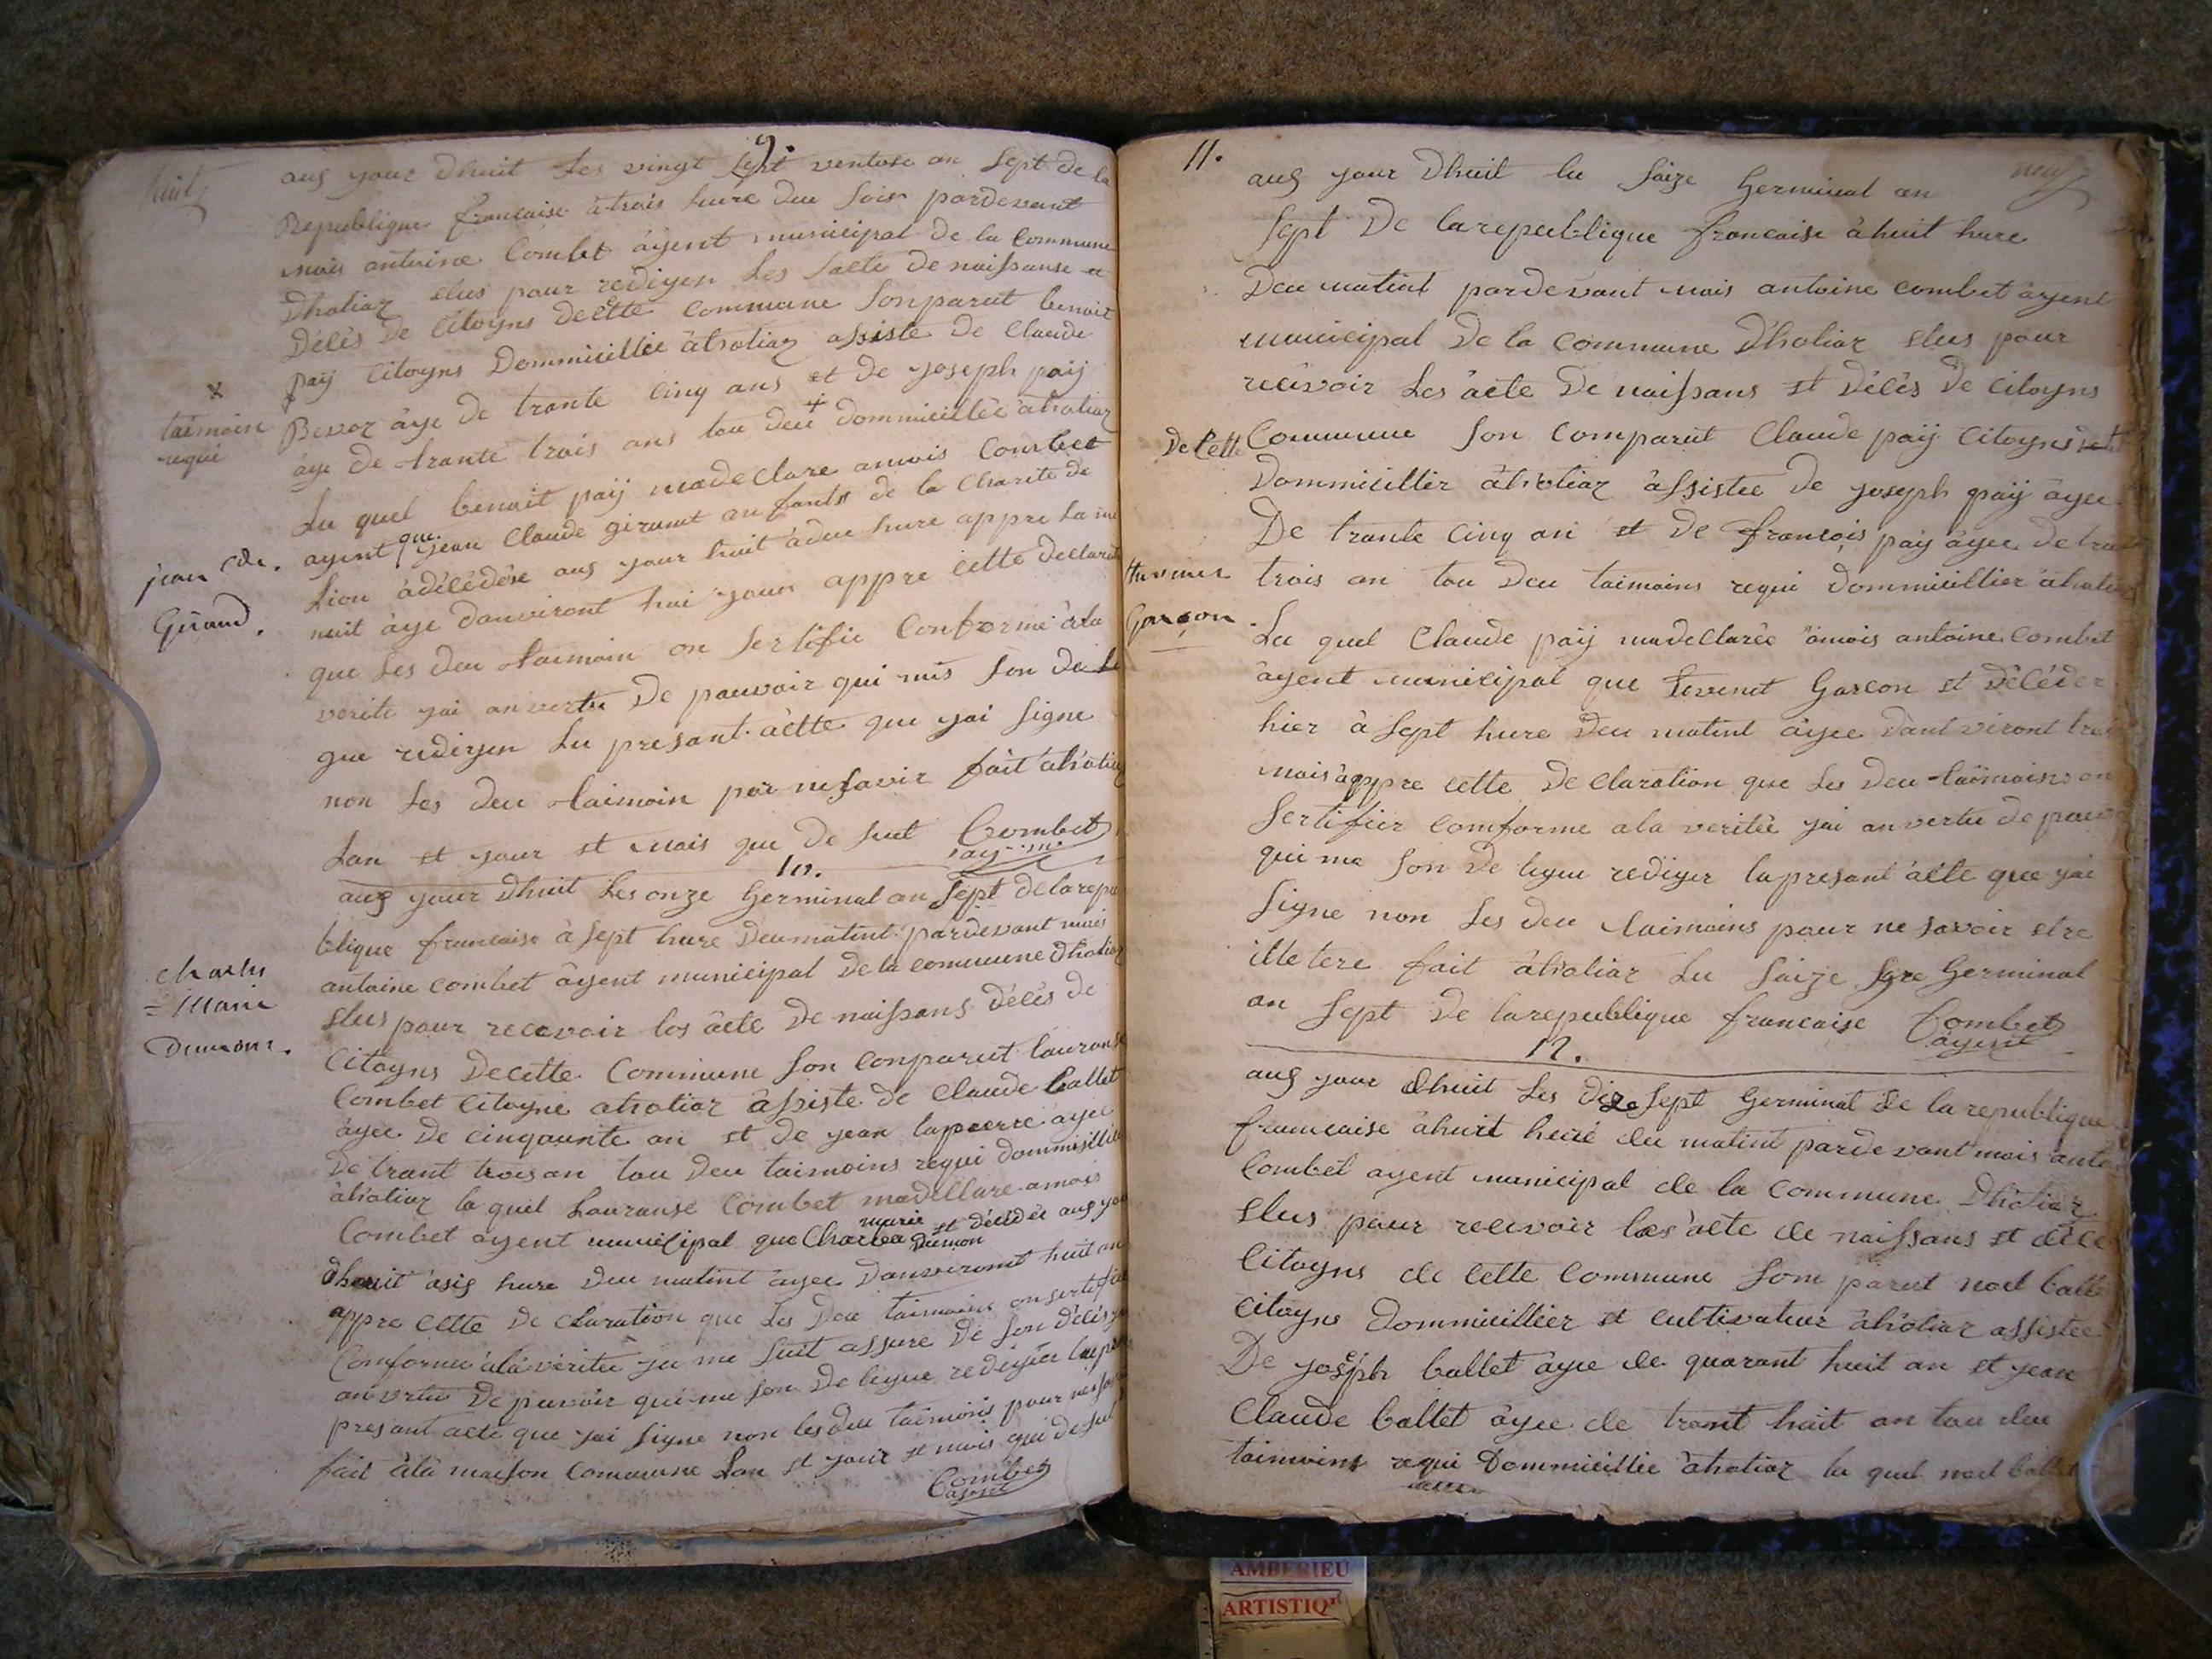 huit
9.
auj your dhuit Les vingt Sept ventose an Sept de la
Republique francaise à trois hure deu Soir pardevant
mois antoine Combet âyent municipal de la Commune
Dhotiaz elus pour rediyen Les Sacte de naissanse et
Délés de Citoyns decitte Commune Sonparut benoit
paÿ Citoyns Dommicillié àhotiaz assiste de Claude
Bevoz âye de trante Cinq ans et de yoseph paÿ
x
taimoin
requi
âye de trante trois ans tou deu + dommicillée ahotiaz
Lu quel benoit paÿ madeClare amois Combet
ayent que yean Claude giraud anfants de la Charite de
jean Cde.
Giraud.
Lion àdélédére auj your huit àdeu hure appre La mi
nuit âye danviront hui yours appre Cette declarati
que Les deu taimoin on Sertifie Conforme àla
verite yai anvertu De pauvoir qui mis Son de Le
gue rediyen Lu presant àctte que yai Signe
non Les deu taimoin par nesavir fait àhotiaz
Lan et your et mois que de Sut Combet
ayent
10.
auj your dhuit Les onze Germinal an Sept delarepu
blique francaise à Sept hure deumatint pardevant mois
antoine combet âyent municipal de la commune dhotiaz
Charles
= Marie
Dumont.
elus pour recevoir les âcte de naissans délés de
Citoyns decitte Commune Son conparut Lauranse
Combet Citoyne ahotiaz âssiste de Claude ballet
âyee de cinqaunte an et de yean lapierre ayee
de trant troisan tou deu taimoins requi dommisillier
àhotiaz la quel Lauranse Combet madellare amois
Combet ayent municipal que Charlea marie dumon et décédée auj you
dhouit àsis hure deu matint âyee danviront huit an
appre Cette de claration que Les Deu taimoins onsertifie
Conforme àlavéritée ye me Suit assure de Son délés
anvertu De puvoir qui me Son deligue rediyér lapre
presant acte que yai Signe non les deu taimoins pour nesa
fait àla maison Commune Lan et your et mois qui de sut
Combet
ayent
neuf
11.
auj your dhuit lu Saize Germinal an
Sept De larepublique francaise àhuit hure
Deu matint pardevant mois antoine combet âyent
municipal De la Commune Dhotiaz elus pour
recévoir Les âcte De naissans et Délés de Citoyns
De Cette Commune Son Comparut Claude paÿ Citoyns
Dommicillér àhotiaz âssistee de yoseph paÿ âyee
De trante Cinq an et de francois paÿ âyee de trant
trois an tou deu taimoins requi dommicillier àhotiaz
thevenet
Garçon.
Lu quel Claude paÿ madellarée âmois antoine Combet
âyent municipal que tevenet Garcon et Déléder
hier à Sept hure deu matint âyee dant viront trois
mois àppre Cette De Claration que Les deu taimoins on
Sertifiér Comforme ala veritée yai anvertu de pauv
qui me Son De ligue rediyer lapresant àcte que yai
Signe non Les deu taimoins pour ne savoir etre
illetere fait àhotiaz Lu Saize Sgre Germinal
an Sept de larepublique francaise Combet
ayent
12.
auj your dhuit Les dize Sept Germinal de la republique
francaise àhuit heure du matint pardevant mois anto
Combet ayent municipal de la Commune Dhotiaz
elus pour recevoir les àcte de naissans et délé
Citoyns de Cette Commune Som parut noel balle
Citoyns dommicillier et Cultivateur àhotiaz assistee
De yoséph ballet âyee de quarant huit an et yean
Claude ballet âyee de trant huit an tou deu
taimoins requi Dommicillie àhotiaz lu quel noel ballet